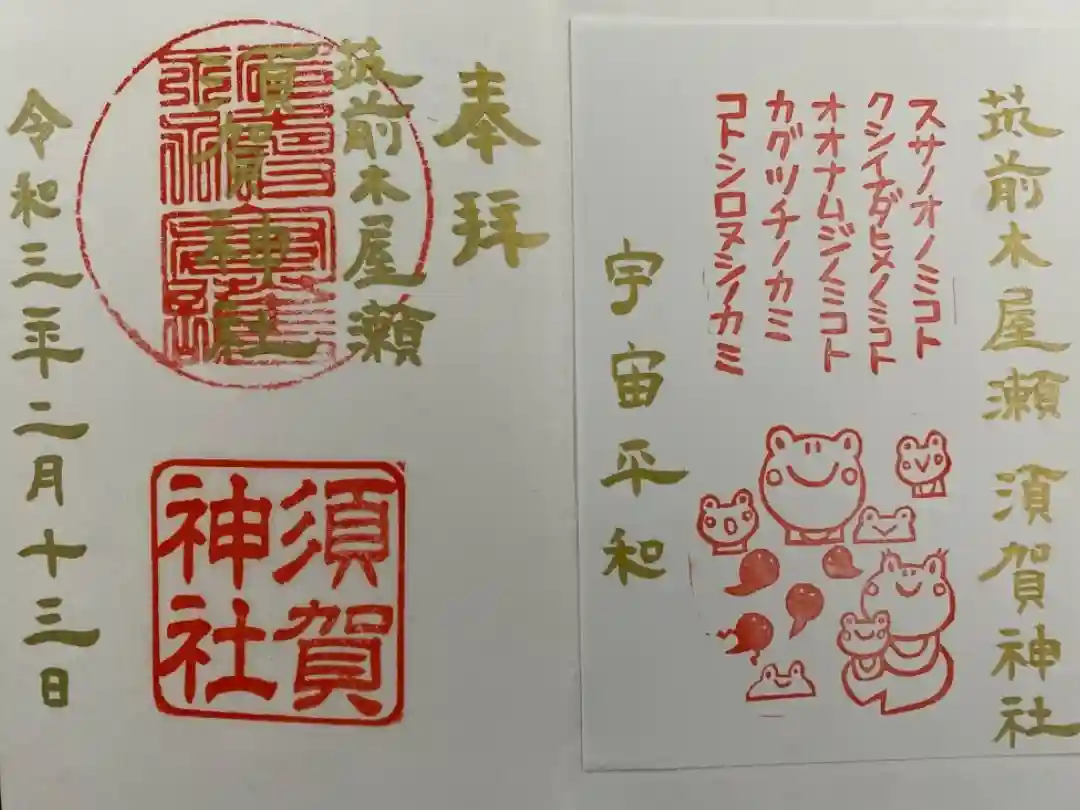 筑前木屋瀬 須賀神社
スサノオノミコト
クシイナダヒメノミコト
オオナムジノミコト
カグツチノカミ
コトシロヌシノカミ
宇宙平和
奉拝
筑前木屋瀬
須賀神社
須賀
神社
令和三年二月十三日